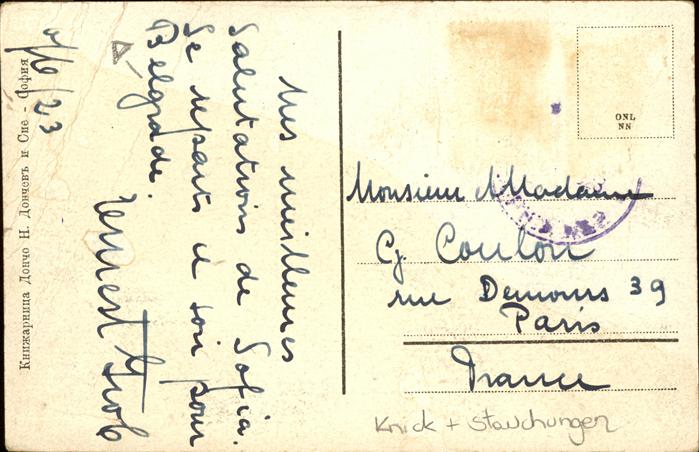 Mes meilleures
Salutations de Sofia.
Je repars ce soir pour
Belgrade.
Ernest Grob
4/6/23
Книжарница Дончо Н. Дончевъ и Сие - София
ONL
NN
Monsieur & Madame
Coulon
rue Demours 39
Paris
France
Knick + Stauchungen